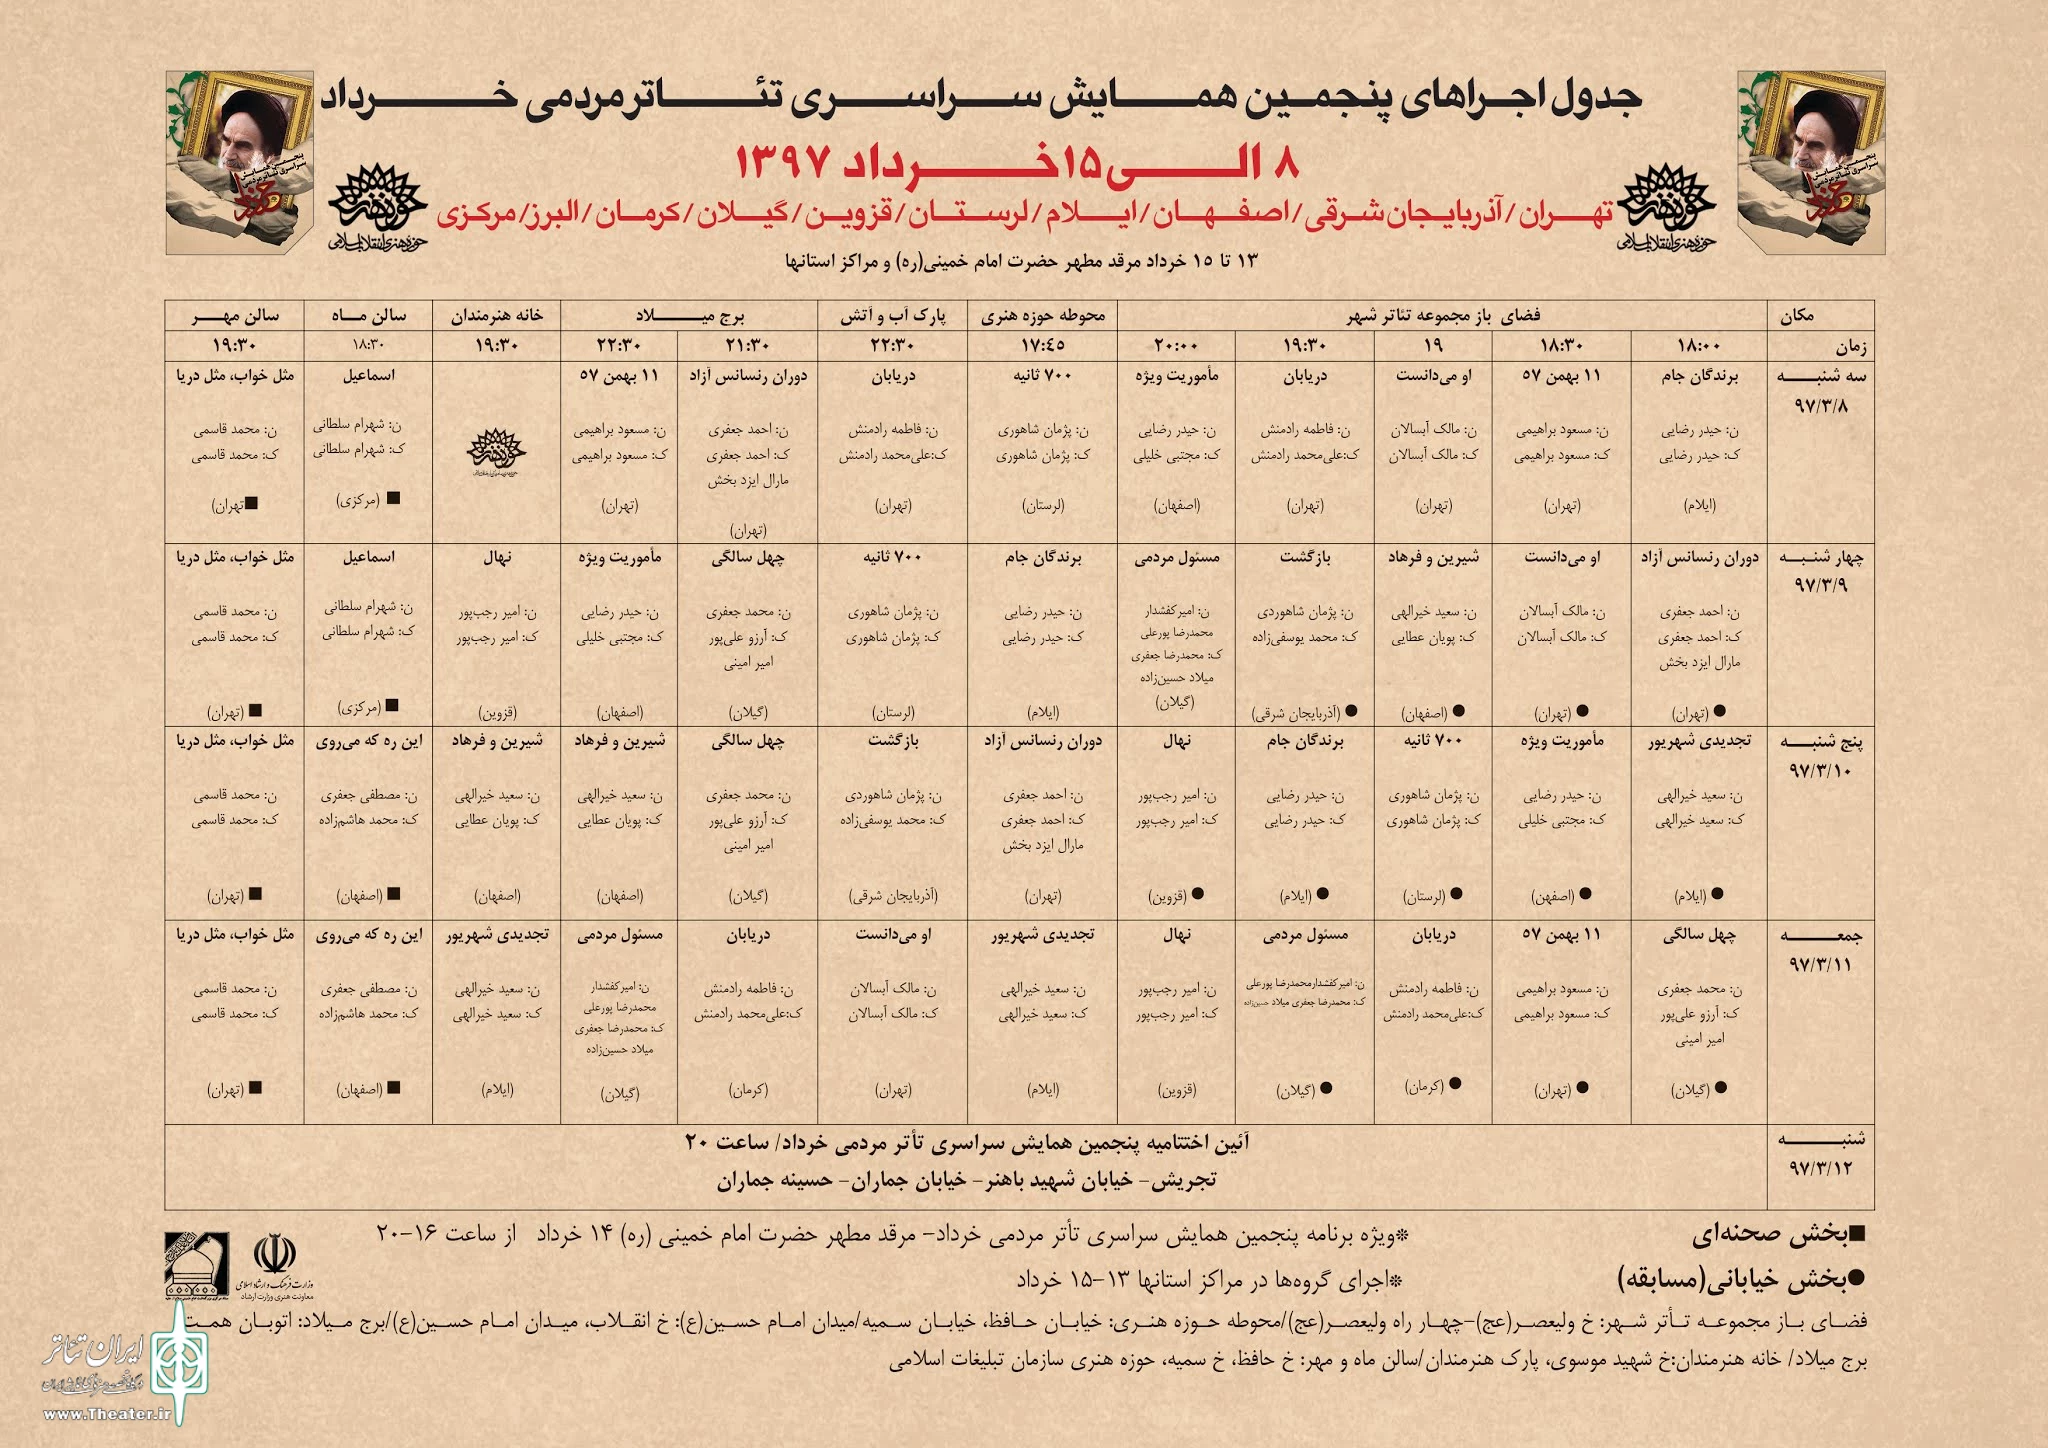 جدول اجراهای پنجمین همایش سراسری تئاتر مردمی خرداد
۸ الی ۱۵ خرداد ۱۳۹۷
تهران/آذربایجان شرقی/اصفهان/ایلام/لرستان/قزوین/گیلان/کرمان/البرز/مرکزی
۱۳ تا ۱۵ خرداد مرقد مطهر حضرت امام خمینی(ره) و مراکز استانها
حوزه هنری انقلاب اسلامی
حوزه هنری انقلاب اسلامی
مکان فضای باز مجموعه تئاتر شهر محوطه حوزه هنری پارک آب و آتش برج میلاد خانه هنرمندان سالن ماه سالن مهر
زمان ۱۸:۰۰ ۱۸:۳۰ ۱۹ ۱۹:۳۰ ۲۰:۰۰ ۱۷:۴۵ ۲۲:۳۰ ۲۱:۳۰ ۲۲:۳۰ ۱۹:۳۰ ۱۸:۳۰ ۱۹:۳۰
سه شنبه برندگان جام ۱۱ بهمن ۵۷ او می‌دانست دریابان مأموریت ویژه ۷۰۰ ثانیه دریابان دوران رنسانس آزاد ۱۱ بهمن ۵۷ اسماعیل مثل خواب، مثل دریا
۹۷/۳/۸
ن: حیدر رضایی ن: مسعود براهیمی ن: مالک آبسالان ن: فاطمه رادمنش ن: حیدر رضایی ن: پژمان شاهوری ن: فاطمه رادمنش ن: احمد جعفری ن: مسعود براهیمی ن: شهرام سلطانی ن: محمد قاسمی
ک: حیدر رضایی ک: مسعود براهیمی ک: مالک آبسالان ک:علی‌محمد رادمنش ک: مجتبی خلیلی ک: پژمان شاهوری ک:علی‌محمد رادمنش ک: احمد جعفری ک: مسعود براهیمی ک: شهرام سلطانی ک: محمد قاسمی
مارال ایزد بخش
(ایلام) (تهران) (تهران) (تهران) (اصفهان) (لرستان) (تهران) (تهران) (تهران) ■ (مرکزی) ■تهران)
چهار شنبه دوران رنسانس آزاد او می‌دانست شیرین و فرهاد بازگشت مسئول مردمی برندگان جام ۷۰۰ ثانیه چهل سالگی مأموریت ویژه نهال اسماعیل مثل خواب، مثل دریا
۹۷/۳/۹
ن: احمد جعفری ن: مالک آبسالان ن: سعید خیرالهی ن: پژمان شاهوردی ن: امیرکفشدار ن: حیدر رضایی ن: پژمان شاهوری ن: محمد جعفری ن: حیدر رضایی ن: امیر رجب‌پور ن: شهرام سلطانی ن: محمد قاسمی
محمدرضا پورعلی
ک: احمد جعفری ک: مالک آبسالان ک: پویان عطایی ک: محمد یوسفی‌زاده ک: محمدرضا جعفری ک: حیدر رضایی ک: پژمان شاهوری ک: آرزو علی‌پور ک: مجتبی خلیلی ک: امیر رجب‌پور ک: شهرام سلطانی ک: محمد قاسمی
مارال ایزد بخش میلاد حسین‌زاده امیر امینی
● (تهران) ● (تهران) ● (اصفهان) ● (آذربایجان شرقی) (گیلان) (ایلام) (لرستان) (گیلان) (اصفهان) (قزوین) ■ (مرکزی) ■ (تهران)
پنج شنبه تجدیدی شهریور مأموریت ویژه ۷۰۰ ثانیه برندگان جام نهال دوران رنسانس آزاد بازگشت چهل سالگی شیرین و فرهاد شیرین و فرهاد این ره که می‌روی مثل خواب، مثل دریا
۹۷/۳/۱۰
ن: سعید خیرالهی ن: حیدر رضایی ن: پژمان شاهوری ن: حیدر رضایی ن: امیر رجب‌پور ن: احمد جعفری ن: پژمان شاهوردی ن: محمد جعفری ن: سعید خیرالهی ن: سعید خیرالهی ن: مصطفی جعفری ن: محمد قاسمی
ک: سعید خیرالهی ک: مجتبی خلیلی ک: پژمان شاهوری ک: حیدر رضایی ک: امیر رجب‌پور ک: احمد جعفری ک: محمد یوسفی‌زاده ک: آرزو علی‌پور ک: پویان عطایی ک: پویان عطایی ک: محمد هاشم‌زاده ک: محمد قاسمی
مارال ایزد بخش امیر امینی
● (ایلام) ● (اصفهن) ● (لرستان) ● (ایلام) ● (قزوین) (تهران) (آذربایجان شرقی) (گیلان) (اصفهان) (اصفهان) ■ (اصفهان) ■ (تهران)
جمعه چهل سالگی ۱۱ بهمن ۵۷ دریابان مسئول مردمی نهال تجدیدی شهریور او می‌دانست دریابان مسئول مردمی تجدیدی شهریور این ره که می‌روی مثل خواب، مثل دریا
۹۷/۳/۱۱
ن: محمد جعفری ن: مسعود براهیمی ن: فاطمه رادمنش ن: امیرکفشدارمحمدرضا پورعلی ن: امیر رجب‌پور ن: سعید خیرالهی ن: مالک آبسالان ن: فاطمه رادمنش ن: امیرکفشدار ن: سعید خیرالهی ن: مصطفی جعفری ن: محمد قاسمی
محمدرضا پورعلی
ک: آرزو علی‌پور ک: مسعود براهیمی ک:علی‌محمد رادمنش ک: محمدرضا جعفری میلاد حسین‌زاده ک: امیر رجب‌پور ک: سعید خیرالهی ک: مالک آبسالان ک:علی‌محمد رادمنش ک: محمدرضا جعفری ک: سعید خیرالهی ک: محمد هاشم‌زاده ک: محمد قاسمی
امیر امینی میلاد حسین‌زاده
● (گیلان) ● (تهران) ● (کرمان) ● (گیلان) (قزوین) (ایلام) (تهران) (کرمان) (گیلان) (ایلام) ■ (اصفهان) ■ (تهران)
شنبه آئین اختتامیه پنجمین همایش سراسری تأتر مردمی خرداد/ ساعت ۲۰
۹۷/۳/۱۲ تجریش- خیابان شهید باهنر- خیابان جماران- حسینه جماران
■بخش صحنه‌ای *ویژه برنامه پنجمین همایش سراسری تأتر مردمی خرداد- مرقد مطهر حضرت امام خمینی (ره) ۱۴ خرداد از ساعت ۱۶-۲۰
●بخش خیابانی(مسابقه) *اجرای گروه‌ها در مراکز استانها ۱۳-۱۵ خرداد
فضای باز مجموعه تأتر شهر: خ ولیعصر(عج)-چهار راه ولیعصر(عج)/محوطه حوزه هنری: خیابان حافظ، خیابان سمیه/میدان امام حسین(ع): خ انقلاب، میدان امام حسین(ع)/برج میلاد: اتوبان همت
برج میلاد/ خانه هنرمندان:خ شهید موسوی، پارک هنرمندان/سالن ماه و مهر: خ حافظ، خ سمیه، حوزه هنری سازمان تبلیغات اسلامی
وزارت فرهنگ و ارشاد اسلامی
معاونت هنری وزارت ارشاد
ایران تئاتر
www.Theater.ir